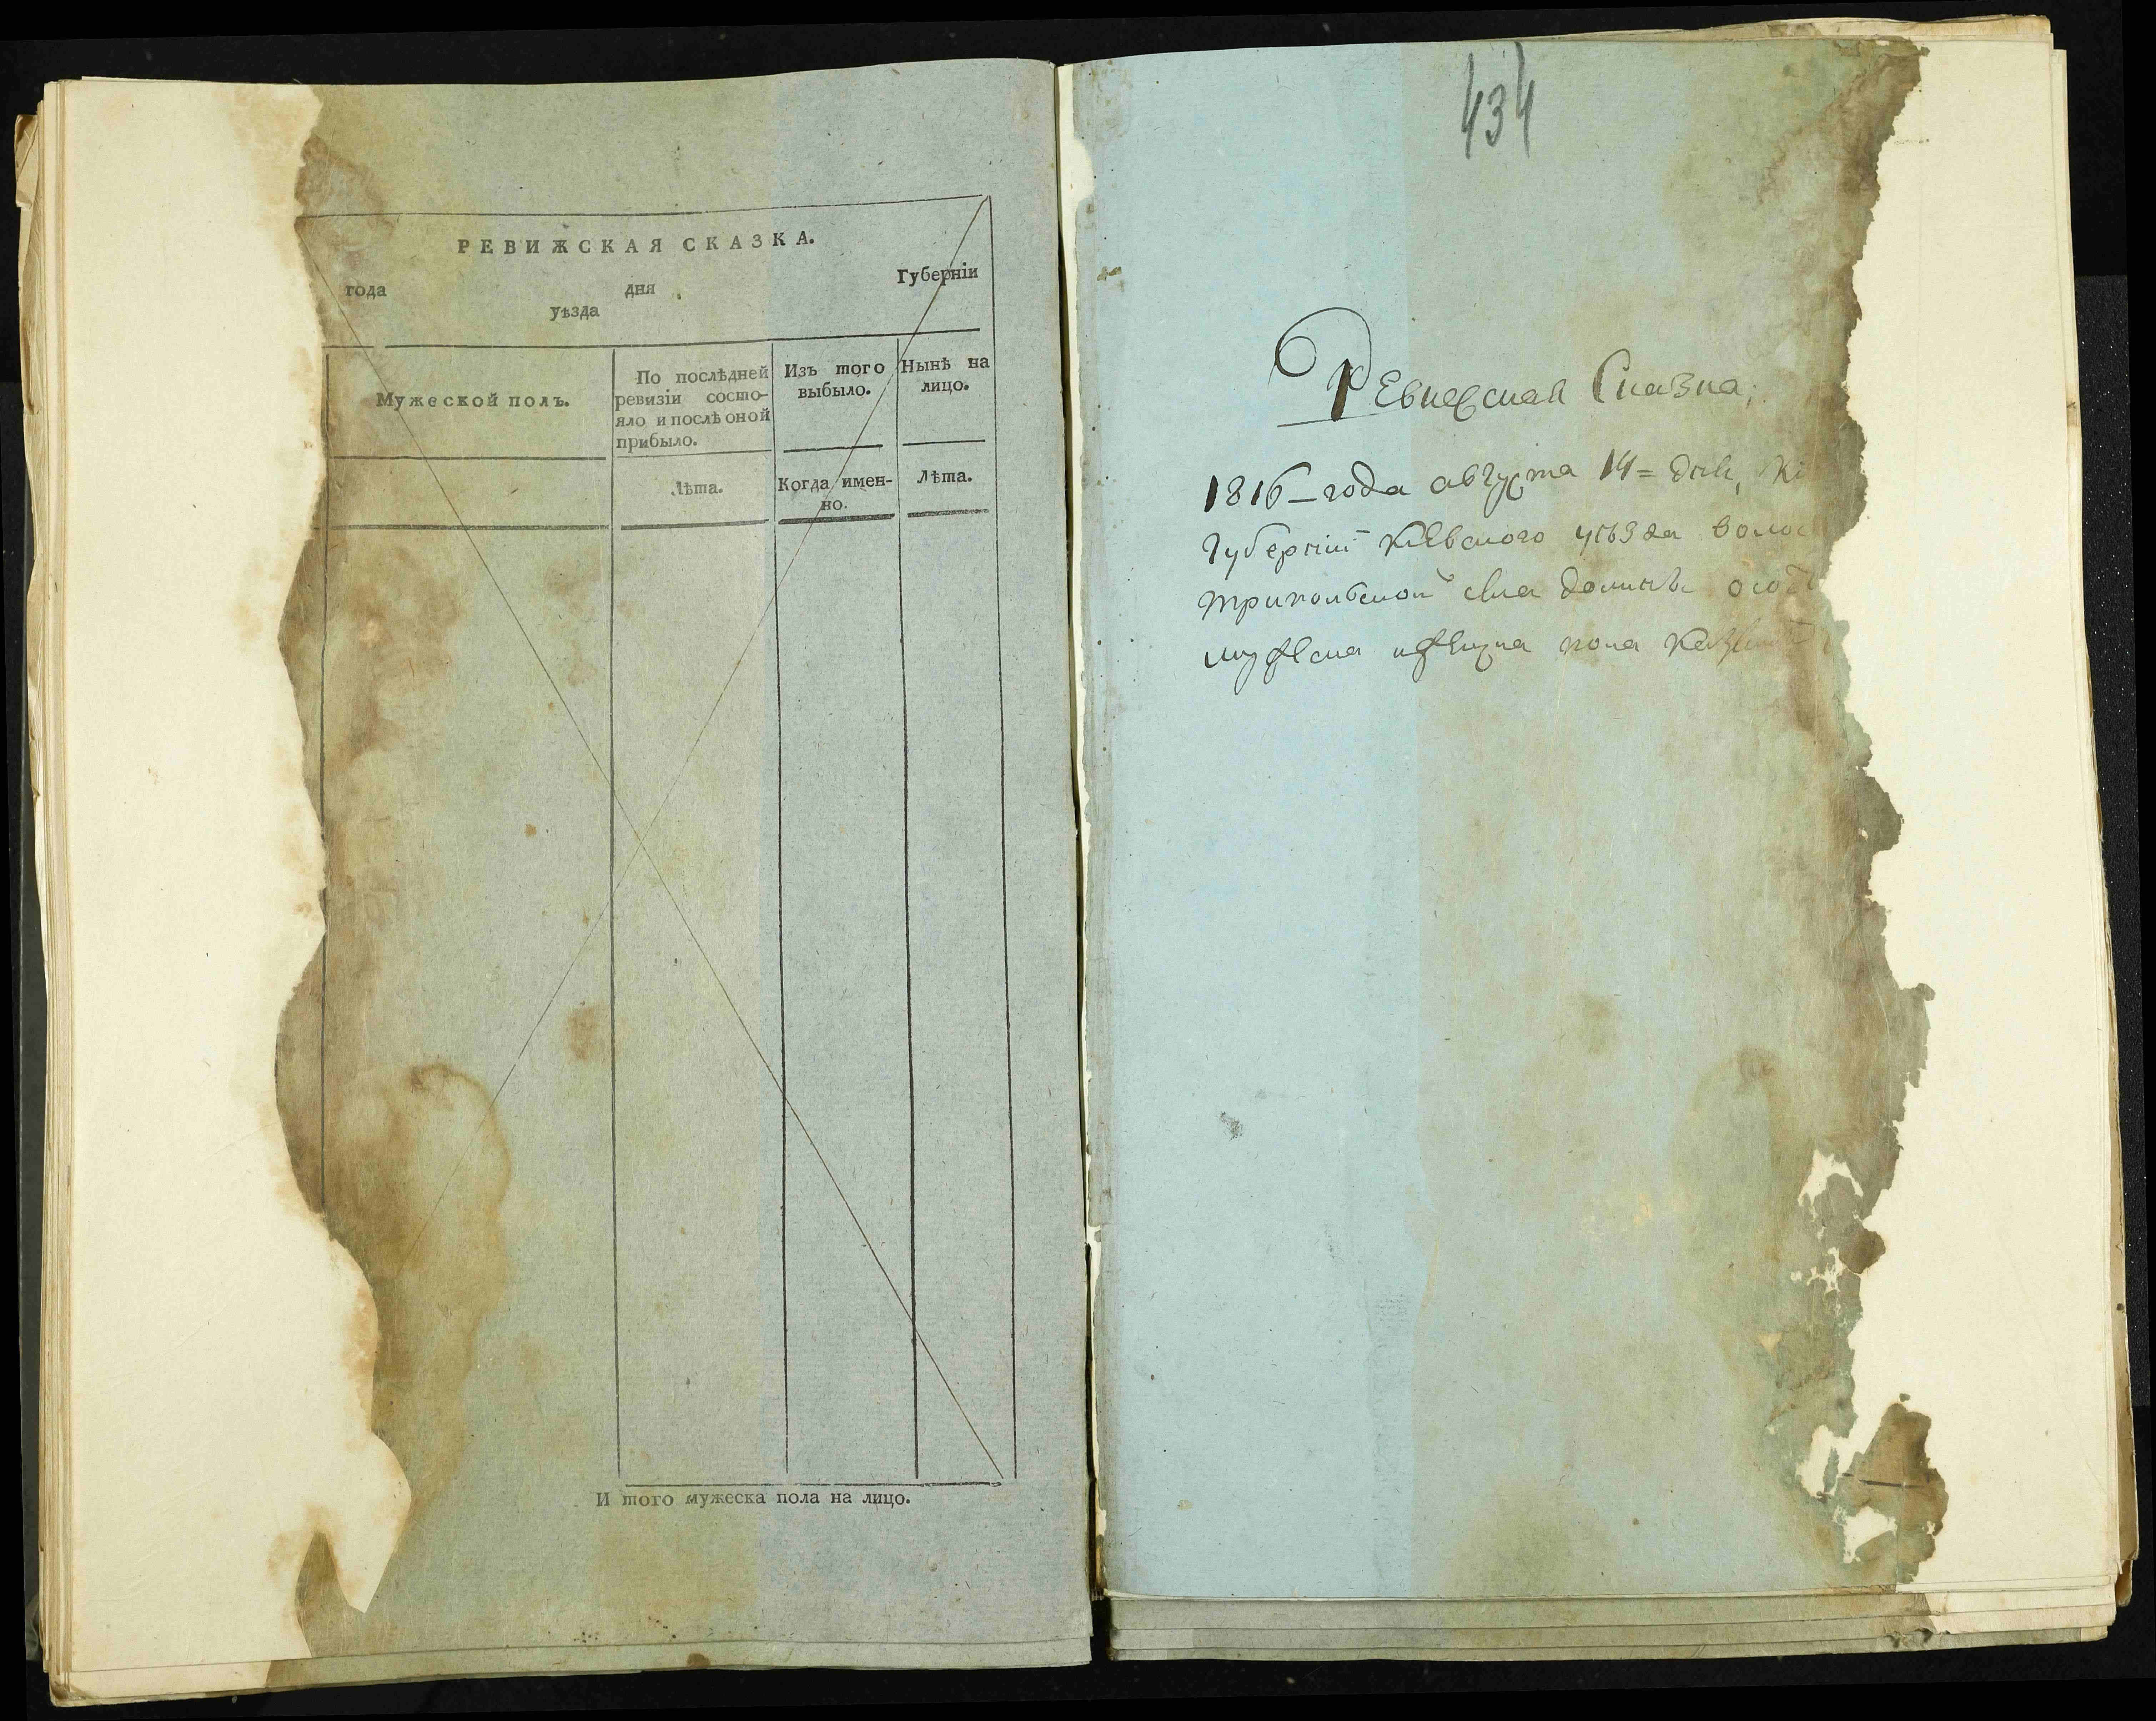 РЕВИЖСКАЯ СКАЗКА.
года дня Губернїи
уѣзда
Мужеской полъ.
По послѣдней ревизїи состо-
яло и послѣ оной прибыло.
Изъ того выбыло.
Нынѣ на лицо.
Лѣта.
Когда имен-
но.
Лѣта.
И того мужеска пола на лицо.
434
Ревизская Сказка,
1816 – года августа 14 = дня, Кі
Губерніи Кіевского уѣзда волос
трипольской села
мужеска и женска пола